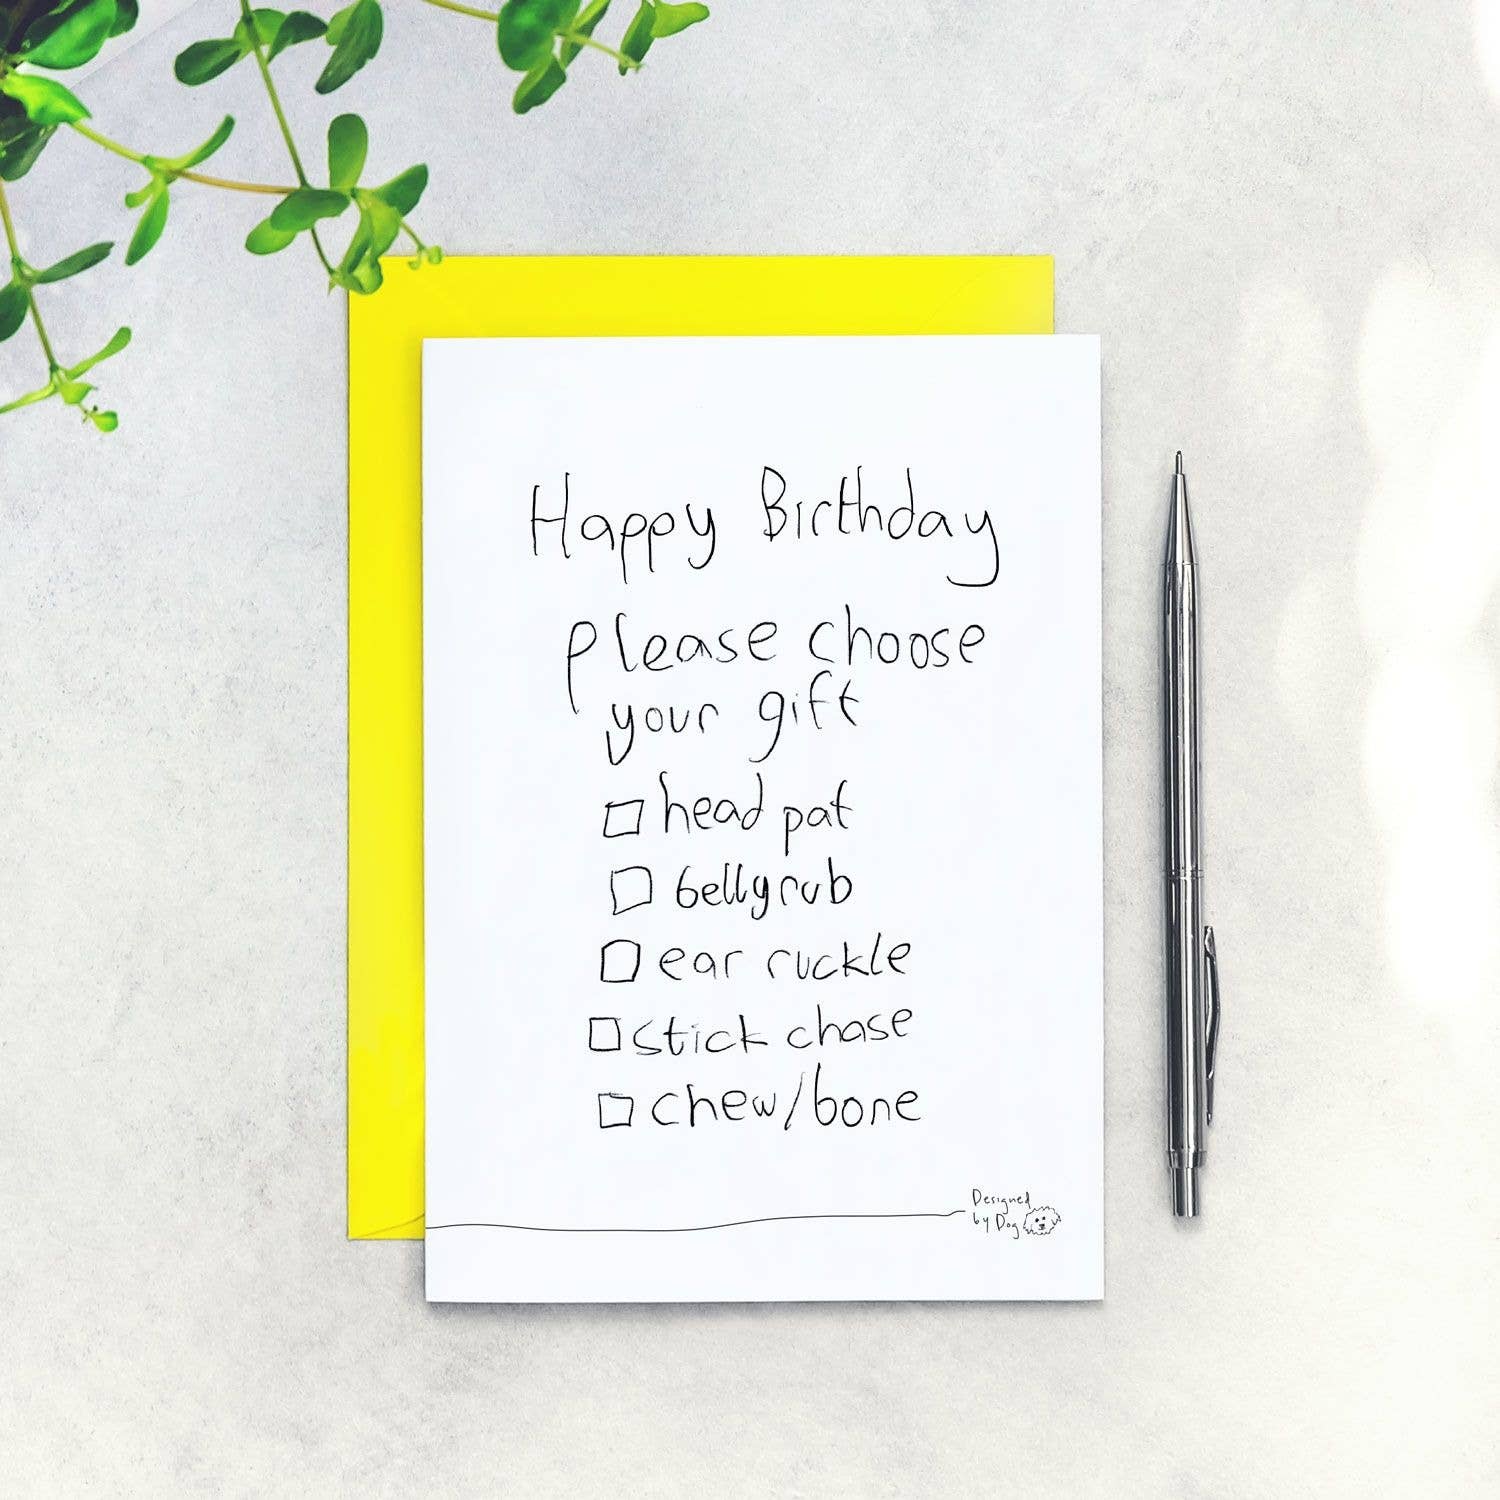 Happy Birthday
please choose
your gift
head pat
belly rub
ear ruckle
stick chase
chew/bone
Designed
by Dog